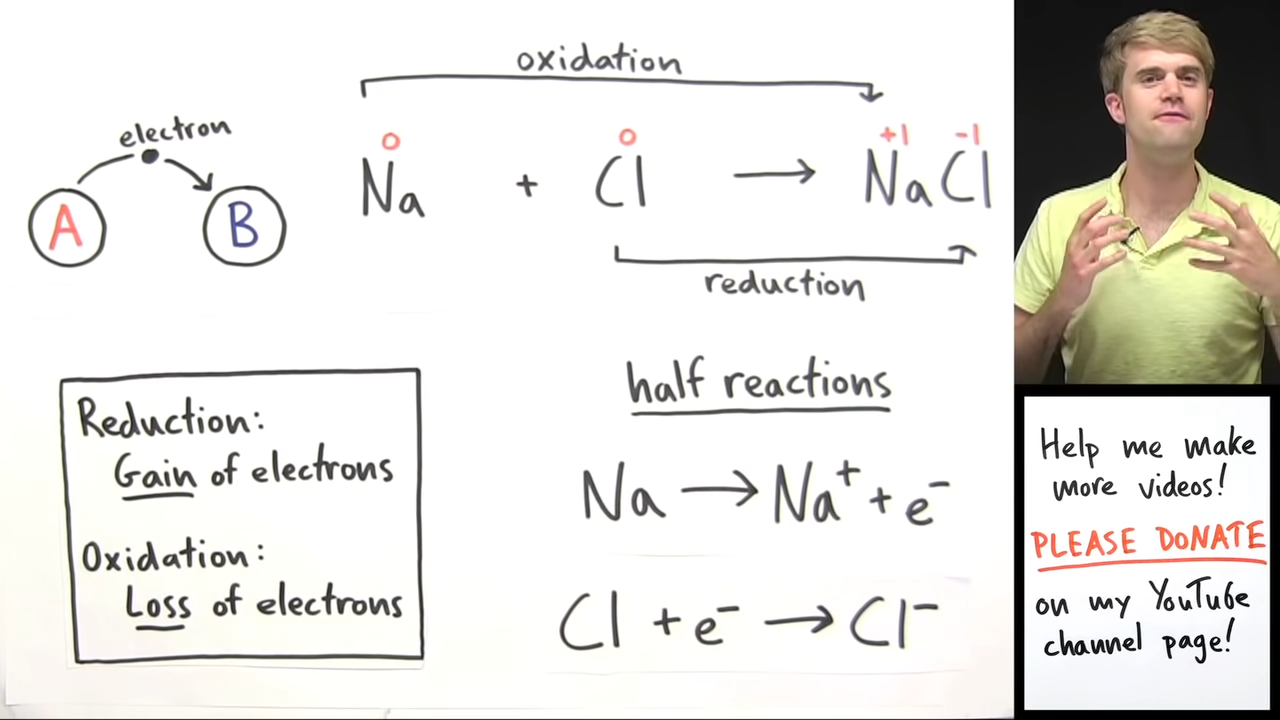 oxidation
electron
0 0 +1 -1
Na + Cl → NaCl
A B
reduction
Reduction:
Gain of electrons
Oxidation:
Loss of electrons
half reactions
Na → Na⁺ + e⁻
Cl + e⁻ → Cl⁻
Help me make
more videos!
PLEASE DONATE
on my YouTube
channel page!